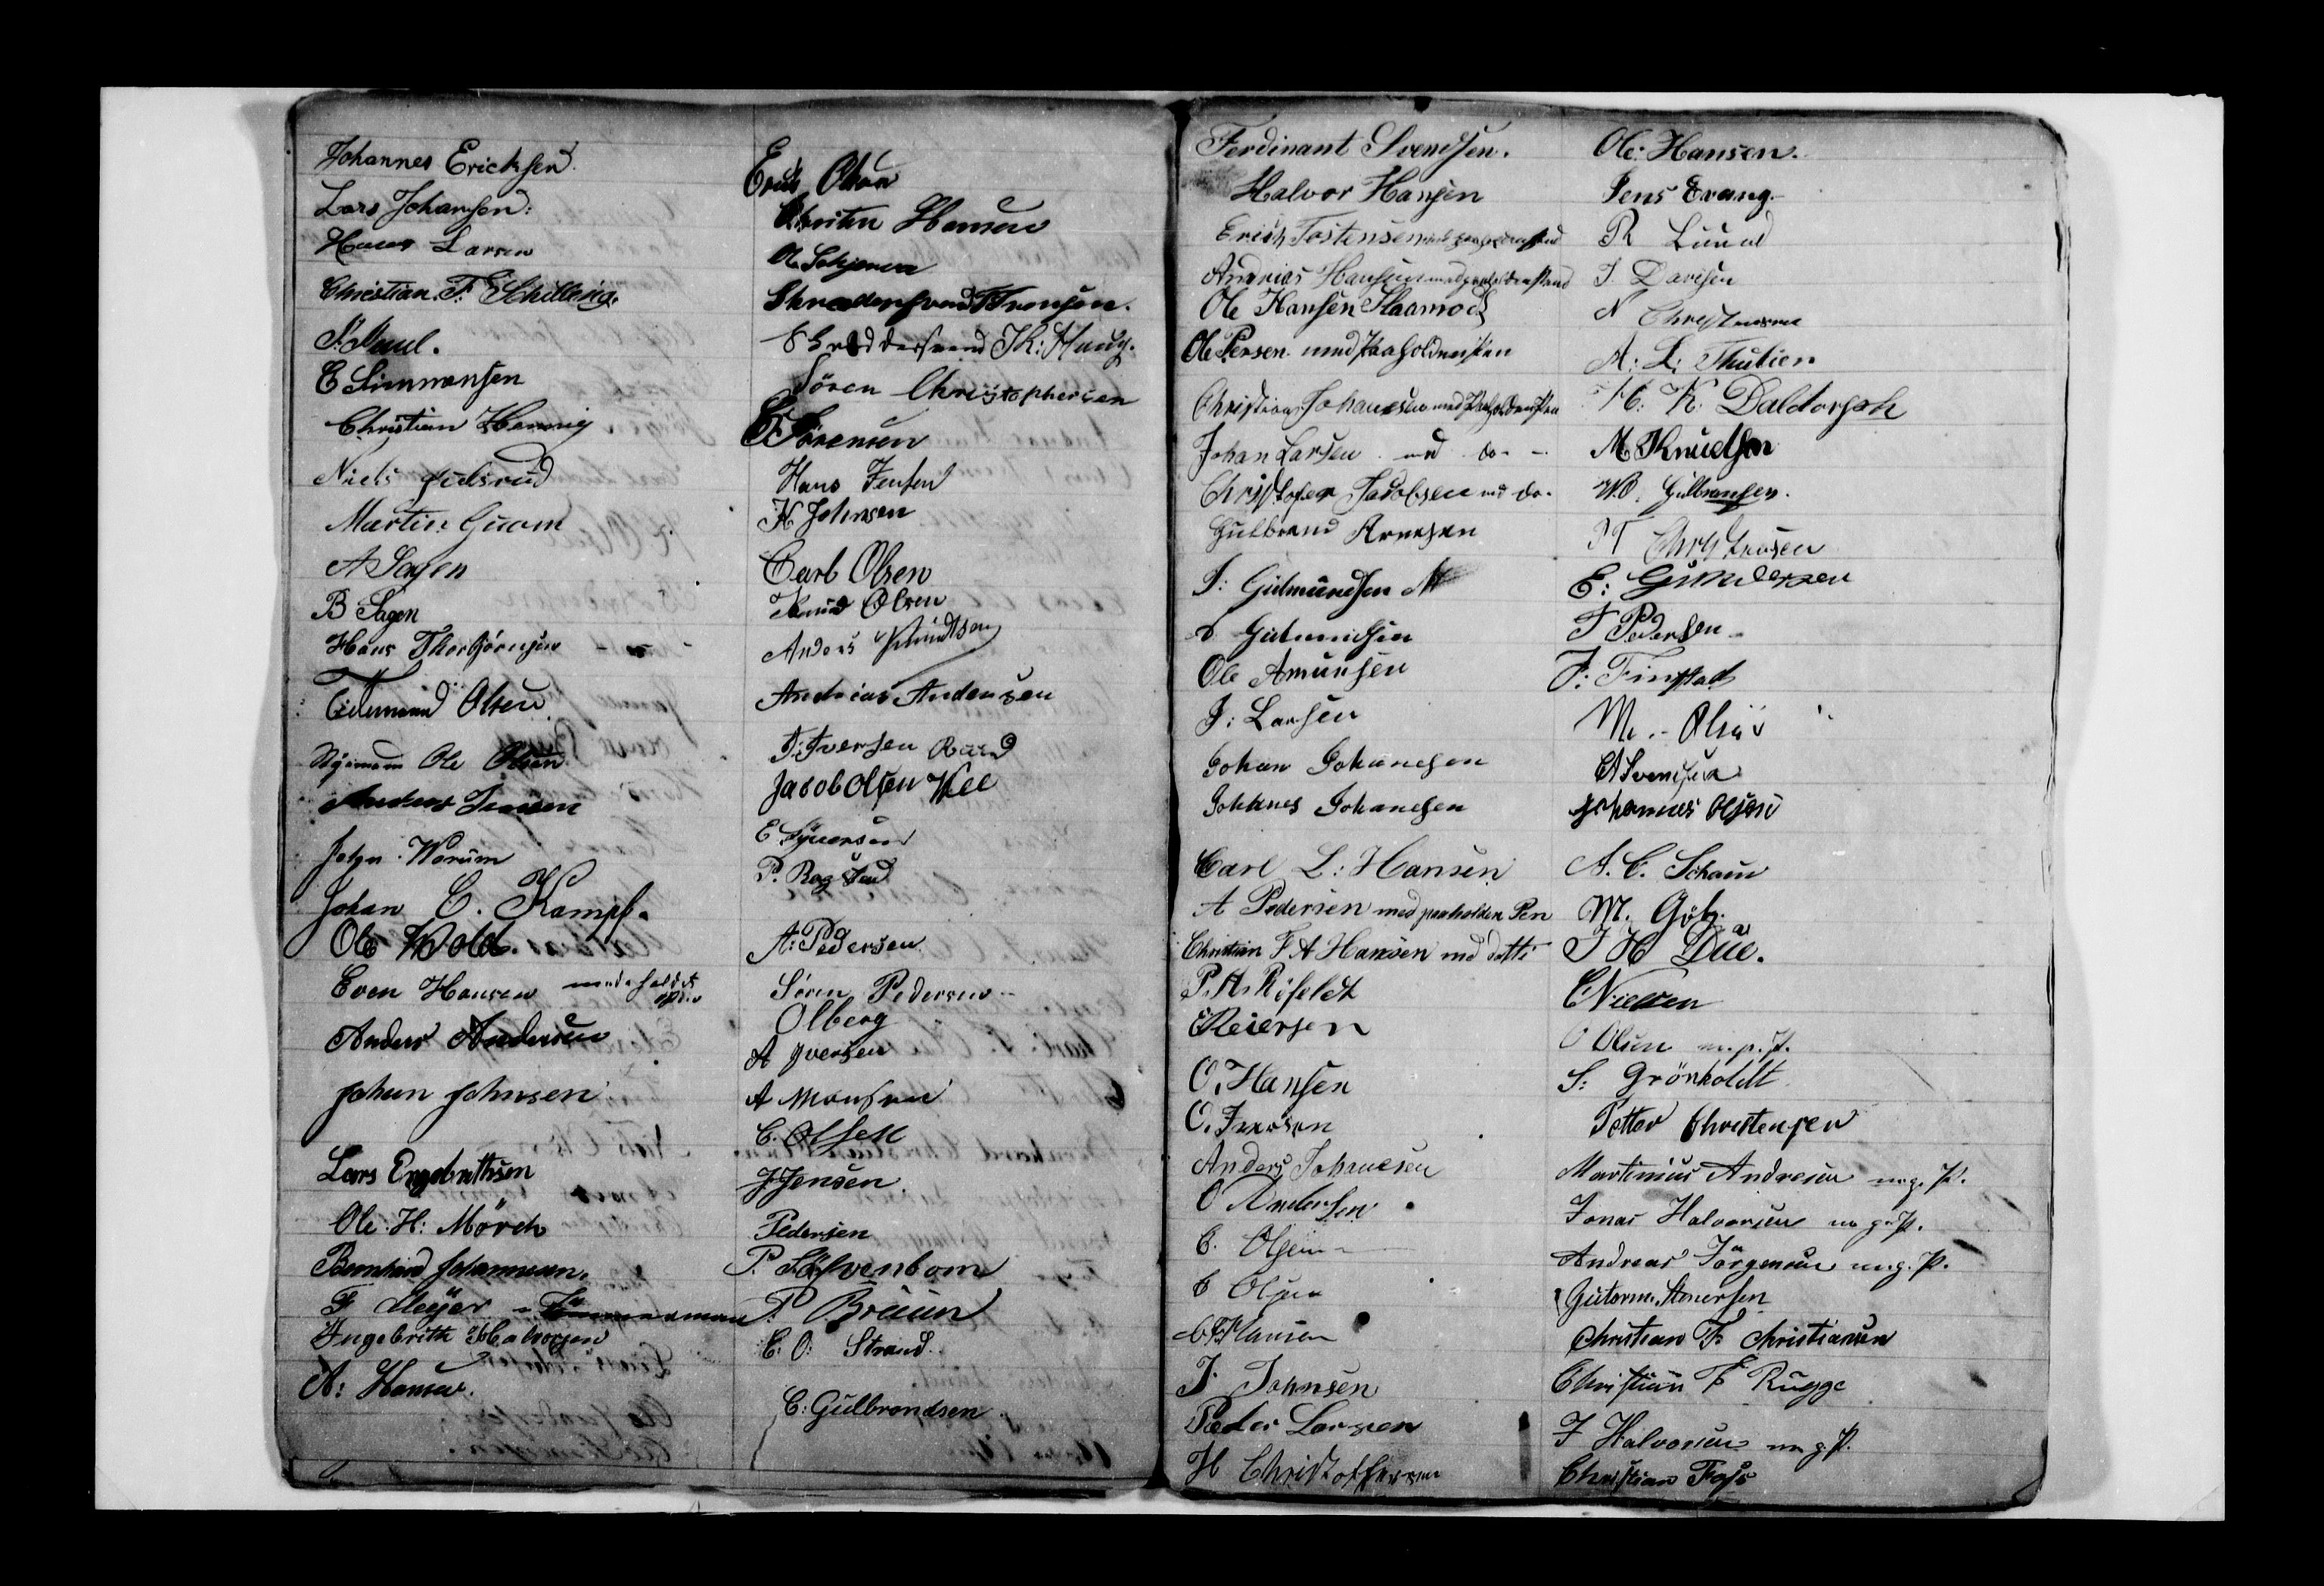 Johannes Ericksen.
Lars Johansen:
Hans Larsen
Christian. F. Schilling.
E Simmonsen
Christian Hennig
Niels Julsrud
Martin Guom
A Sagen
B Sagen
Hans Thorbjörnsen
Gudmund Olsen
Ole Olsen
Anders Jensen
John. Worum
Johan C. Kampf.
Ole Wold.
Even Hansen
Anders Andersen
Johan Johnsen
Lars Engebrethsen
Ole. H: Mörch
Bernhard Johannesen.
F Meyer
Ingebrith Halvorsen
A: Hansen.
Erik Olsen
Christen Hansen
Skrædersvend F Fronsen.
Skræddersvend K: Haug.
Sören Christophersen
E Sörensen
Hans Jensen
H Johnsen
Carl Olsen
Knud Olsen
Anders Knudtsen
Andreas Andersen
T: Iversen
Jacob Olsen Wee
E Syversen
P. Rogstad
A: Pedersen.
Sören Pedersen
Olberg
A Iversen
A Monsen
C. Olsen
J Jensen.
Pedersen
P. Löfvenbom
P. Braun
E. O: Strand.
C: Gulbrandsen
Ferdinant Svendsen.
Halvor Hansen
Erich Tostensen
Andreas Hansen med paaholden Pend
Ole Hansen Flaamoe
Ole Persen med Paaholdenpen
Christian Johanesen med Paaholdenpen
Johan Larsen md do -
Christofer Jacobsen md do.
Gulbrand Arnesen
I: Gulmundsen
Gulmundsen
Ole Amunsen
J: Larsen
Johan Johanesen
Johanes Johanesen
Carl L: Hansen
A Pedersen med paaholden Pen
Christian F A Hansen med dette
P. A. Rifeldt
E Reiersen
O. Hansen
O. Iversen
Anders Johanesen
O Andersen
C. Olsen
C Olsen
C F Hansen
J. Johnsen
Peder Larsen
H Christoffersen
Ole: Hansen.
Jens Evang.
R Lund
I. Davisen
N Christensen
A: L: Thulien
H: K: Daldorph
M Knudsen
W. Gulbransen.
P T Christensen
E: Gundersen
T Pedersen
J: Finstad
M. Olsen
A Svendsen
Johannes Olsen
A. C. Scham
M. Götz.
J H Due.
C Nielsen
O Olsen m. p. P.
S: Grönholdt
Petter Christensen
Martinius Andresen m. g. P.
Jonas Halvorsen m g P.
Andreas Jörgensen m. g. P.
Gutorm. Stenersen
Christian F. Christiansen
Christian F Rugge
J Halvorsen m g P.
Christian Foss